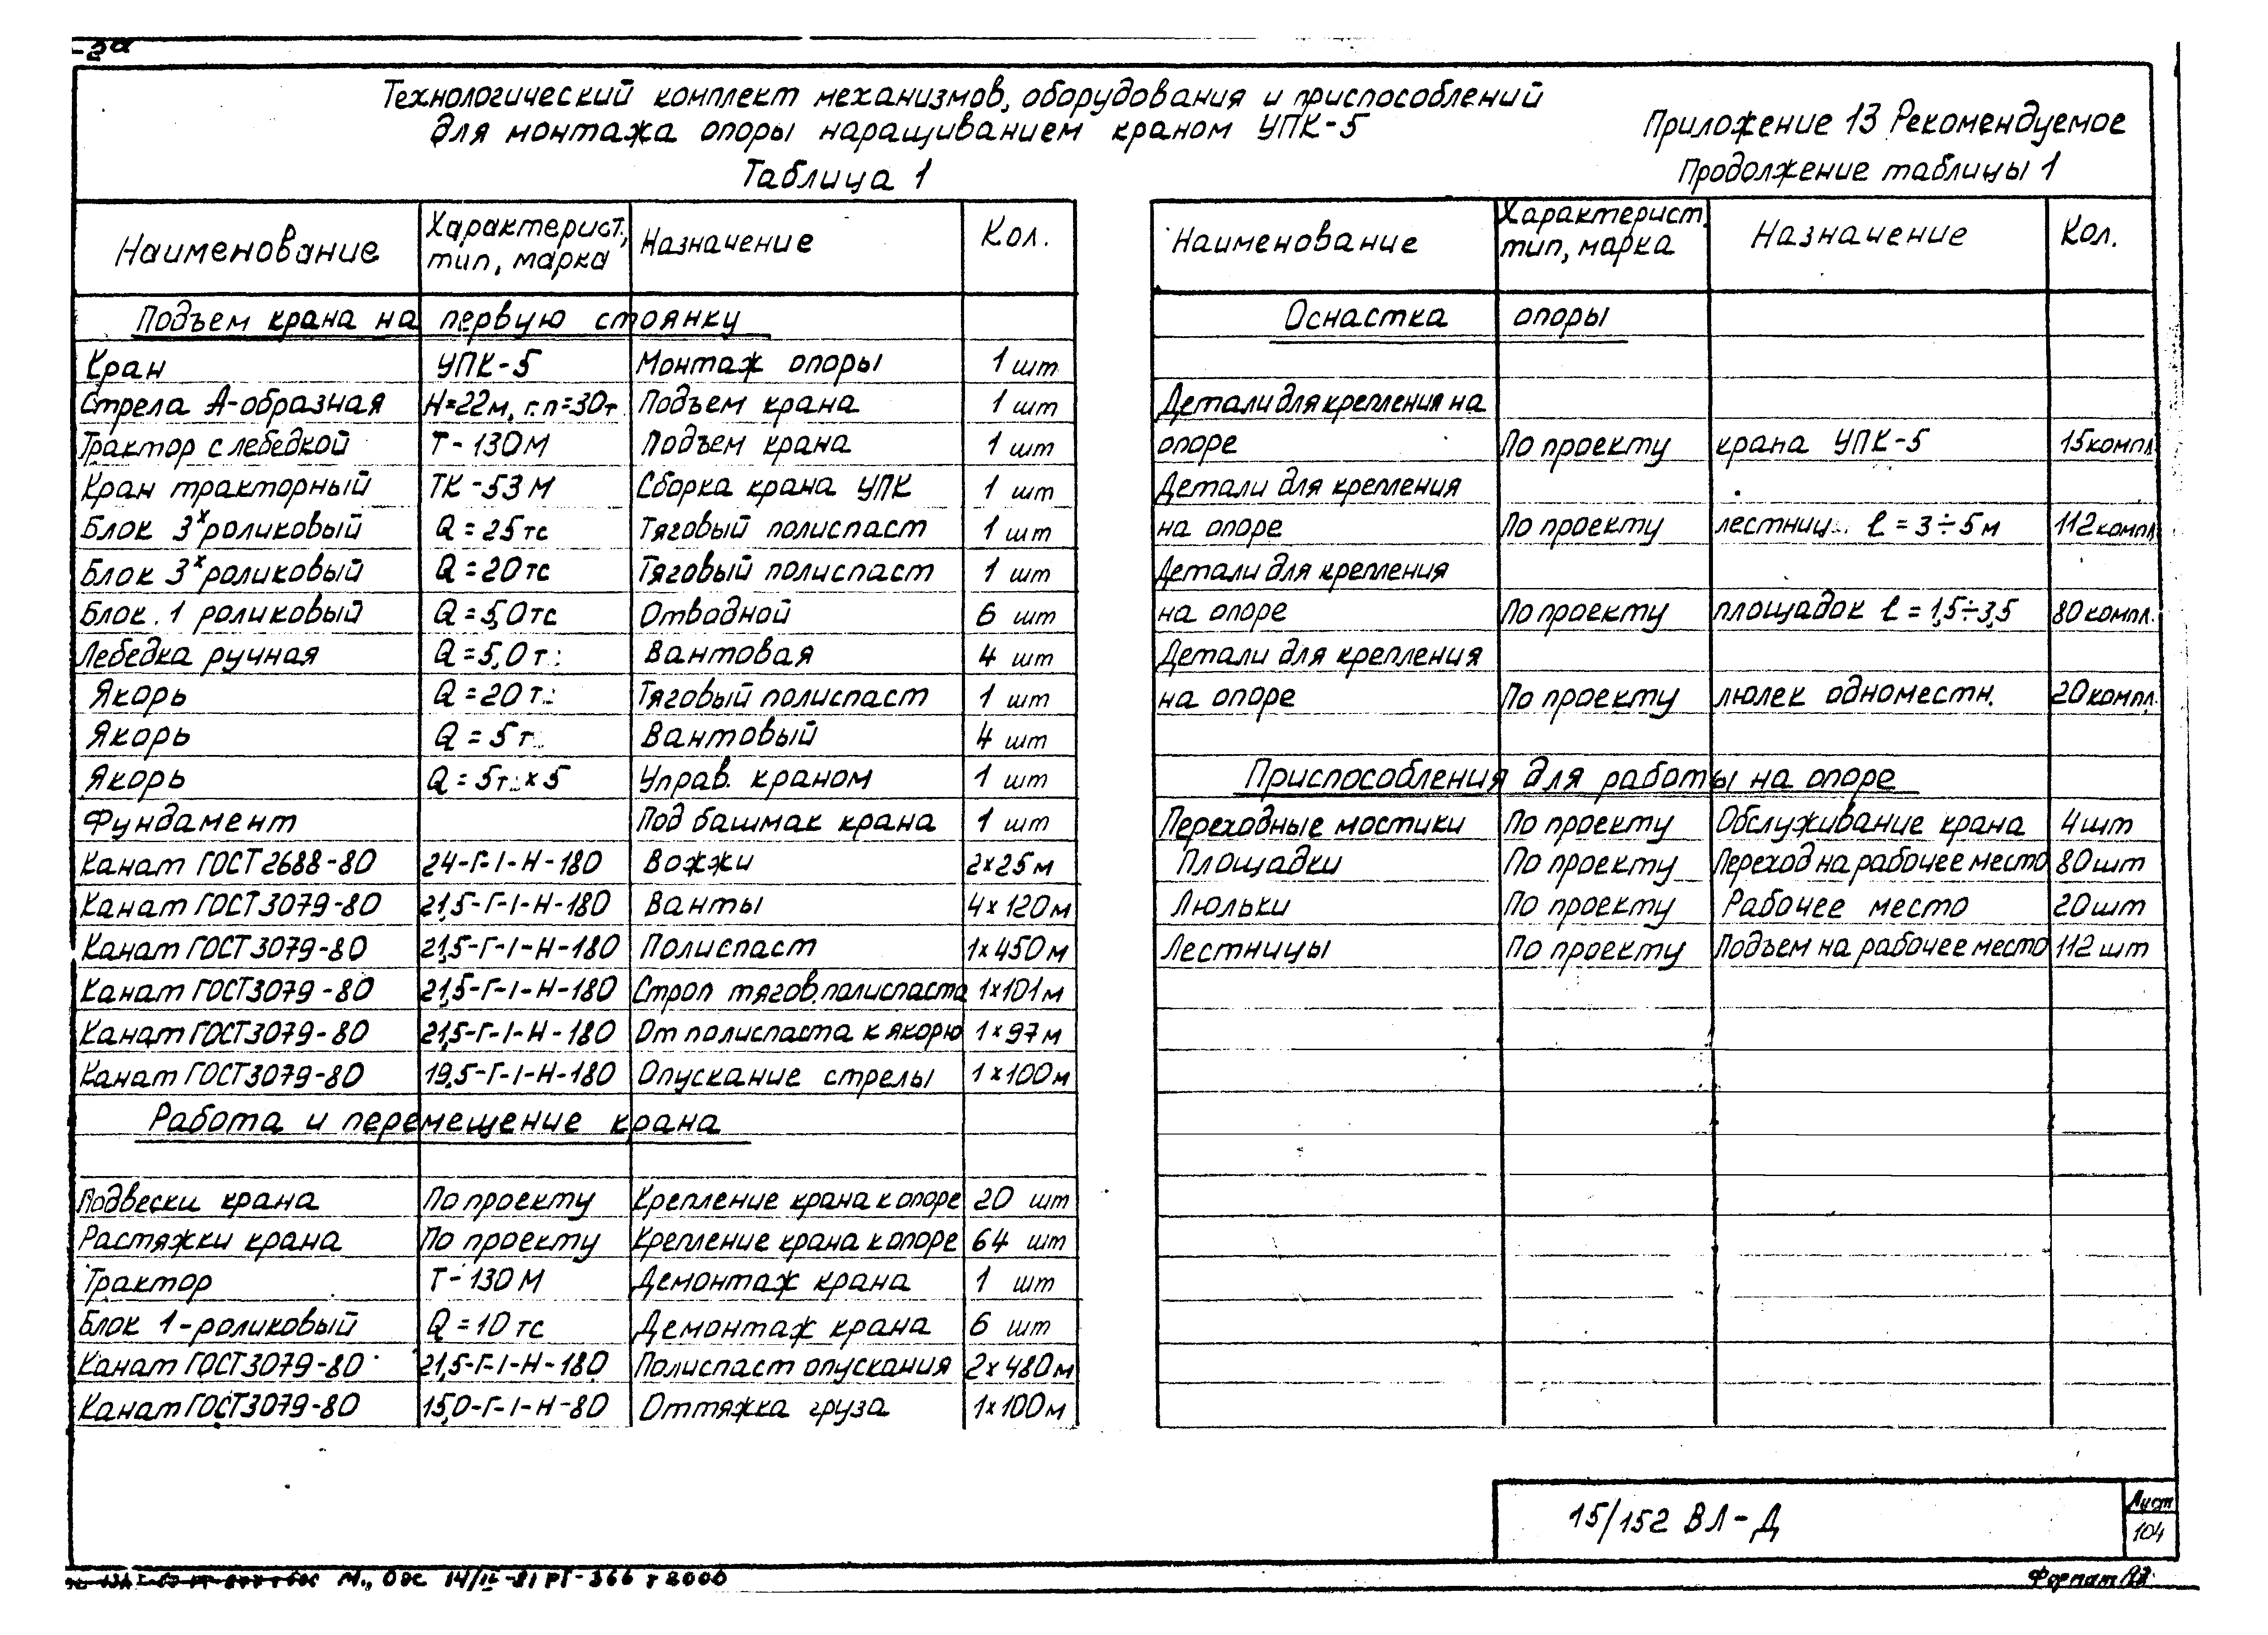 Технологический комплект механизмов, оборудования и приспособлений
для монтажа опоры наращиванием краном УПК-5
Приложение 13 Рекомендуемое
Таблица 1
Продолжение таблицы 1
Наименование Характерист., тип, марка Назначение Кол.
Подъем крана на первую стоянку
Кран УПК-5 Монтаж опоры 1 шт
Стрела А-образная Н=22м, г.п=30т Подъем крана 1 шт
Трактор с лебедкой Т-130М Подъем крана 1 шт
Кран тракторный ТК-53М Сборка крана УПК 1 шт
Блок 3х роликовый Q=25тс Тяговый полиспаст 1 шт
Блок 3х роликовый Q=20тс Тяговый полиспаст 1 шт
Блок 1 роликовый Q=5,0тс Отводной 6 шт
Лебедка ручная Q=5,0т Вантовая 4 шт
Якорь Q=20т Тяговый полиспаст 1 шт
Якорь Q=5т Вантовый 4 шт
Якорь Q=5т×5 Управ. краном 1 шт
Фундамент Под башмак крана 1 шт
Канат ГОСТ 2688-80 24-Г-I-Н-180 Вожжи 2×25м
Канат ГОСТ 3079-80 21,5-Г-I-Н-180 Ванты 4×120м
Канат ГОСТ 3079-80 21,5-Г-I-Н-180 Полиспаст 1×450м
Канат ГОСТ 3079-80 21,5-Г-I-Н-180 Строп тягов. полиспаста 1×101м
Канат ГОСТ 3079-80 21,5-Г-I-Н-180 От полиспаста к якорю 1×97м
Канат ГОСТ 3079-80 19,5-Г-I-Н-180 Опускание стрелы 1×100м
Работа и перемещение крана
Подвески крана По проекту Крепление крана к опоре 20 шт
Растяжки крана По проекту Крепление крана к опоре 64 шт
Трактор Т-130М Демонтаж крана 1 шт
Блок 1-роликовый Q=10тс Демонтаж крана 6 шт
Канат ГОСТ 3079-80 21,5-Г-I-Н-180 Полиспаст опускания 2×480м
Канат ГОСТ 3079-80 15,0-Г-I-Н-80 Оттяжка груза 1×100м
Наименование Характерист. тип, марка Назначение Кол.
Оснастка опоры
Детали для крепления на
опоре По проекту крана УПК-5 15 компл
Детали для крепления
на опоре По проекту лестниц ℓ=3÷5м 112 компл
Детали для крепления
на опоре По проекту площадок ℓ=1,5÷3,5 80 компл.
Детали для крепления
на опоре По проекту люлек одноместн. 20 компл.
Приспособления для работы на опоре
Переходные мостики По проекту Обслуживание крана 4 шт
Площадки По проекту Переход на рабочее место 80 шт
Люльки По проекту Рабочее место 20 шт
Лестницы По проекту Подъем на рабочее место 112 шт
15/152 ВЛ-Д
Лист
104
Формат А3